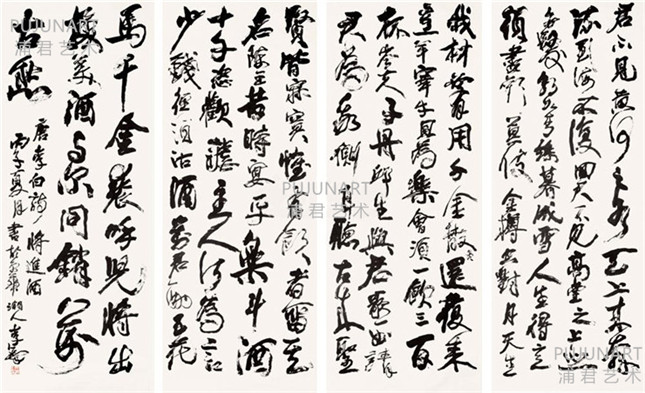 君不見黃河之水天上來奔
流到海不復回又不見高堂之上
髮朝如青絲暮成雪人生得意
須盡歡莫使金樽空對月天生
我材必有用千金散盡還復來
烹羊宰牛且為樂會須一飲三百
杯岑夫子丹邱生與君歌一曲請
君為我側耳聽古來聖
賢皆寂寞惟有飲者留其
名陳王昔時宴平樂斗酒
十千恣歡謔主人何為言
少錢徑須沽酒對君酌五花
馬千金裘呼兒將出
換美酒與爾同銷萬
古愁
唐李白詩將進酒
丙子夏月書於
PUJUNART
浦君艺术
PUJUNART
浦君艺术
PUJUNART
浦君艺术
PUJUNART
浦君艺术